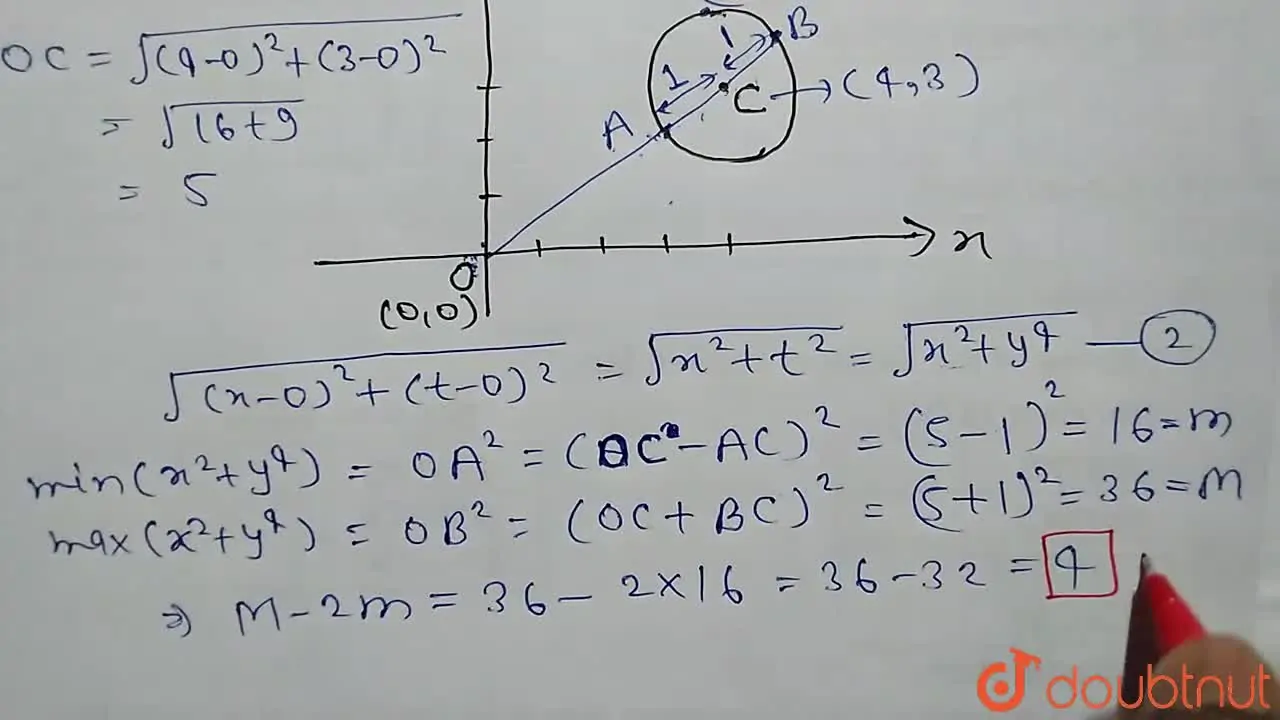 OC = √(4-0)²+(3-0)²
= √16+9
= 5
1
B
1
C → (4,3)
A
x
O
(0,0)
√(x-0)²+(t-0)² = √x²+t² = √x²+y⁴ — 2
min(x²+y⁴) = OA² = (OC-AC)² = (5-1)² = 16 = m
max(x²+y⁴) = OB² = (OC+BC)² = (5+1)² = 36 = M
⇒ M-2m = 36-2×16 = 36-32 = 4
doubtnut